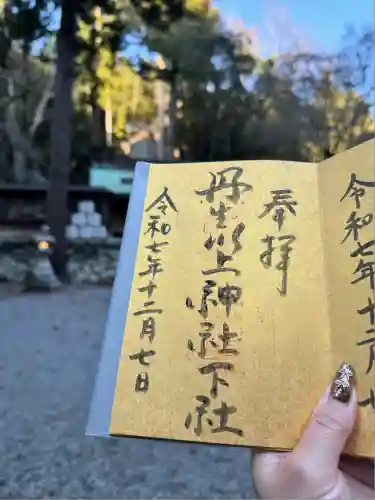 奉拝
丹生川上神社下社
令和七年十二月七日
令和七年十二月七